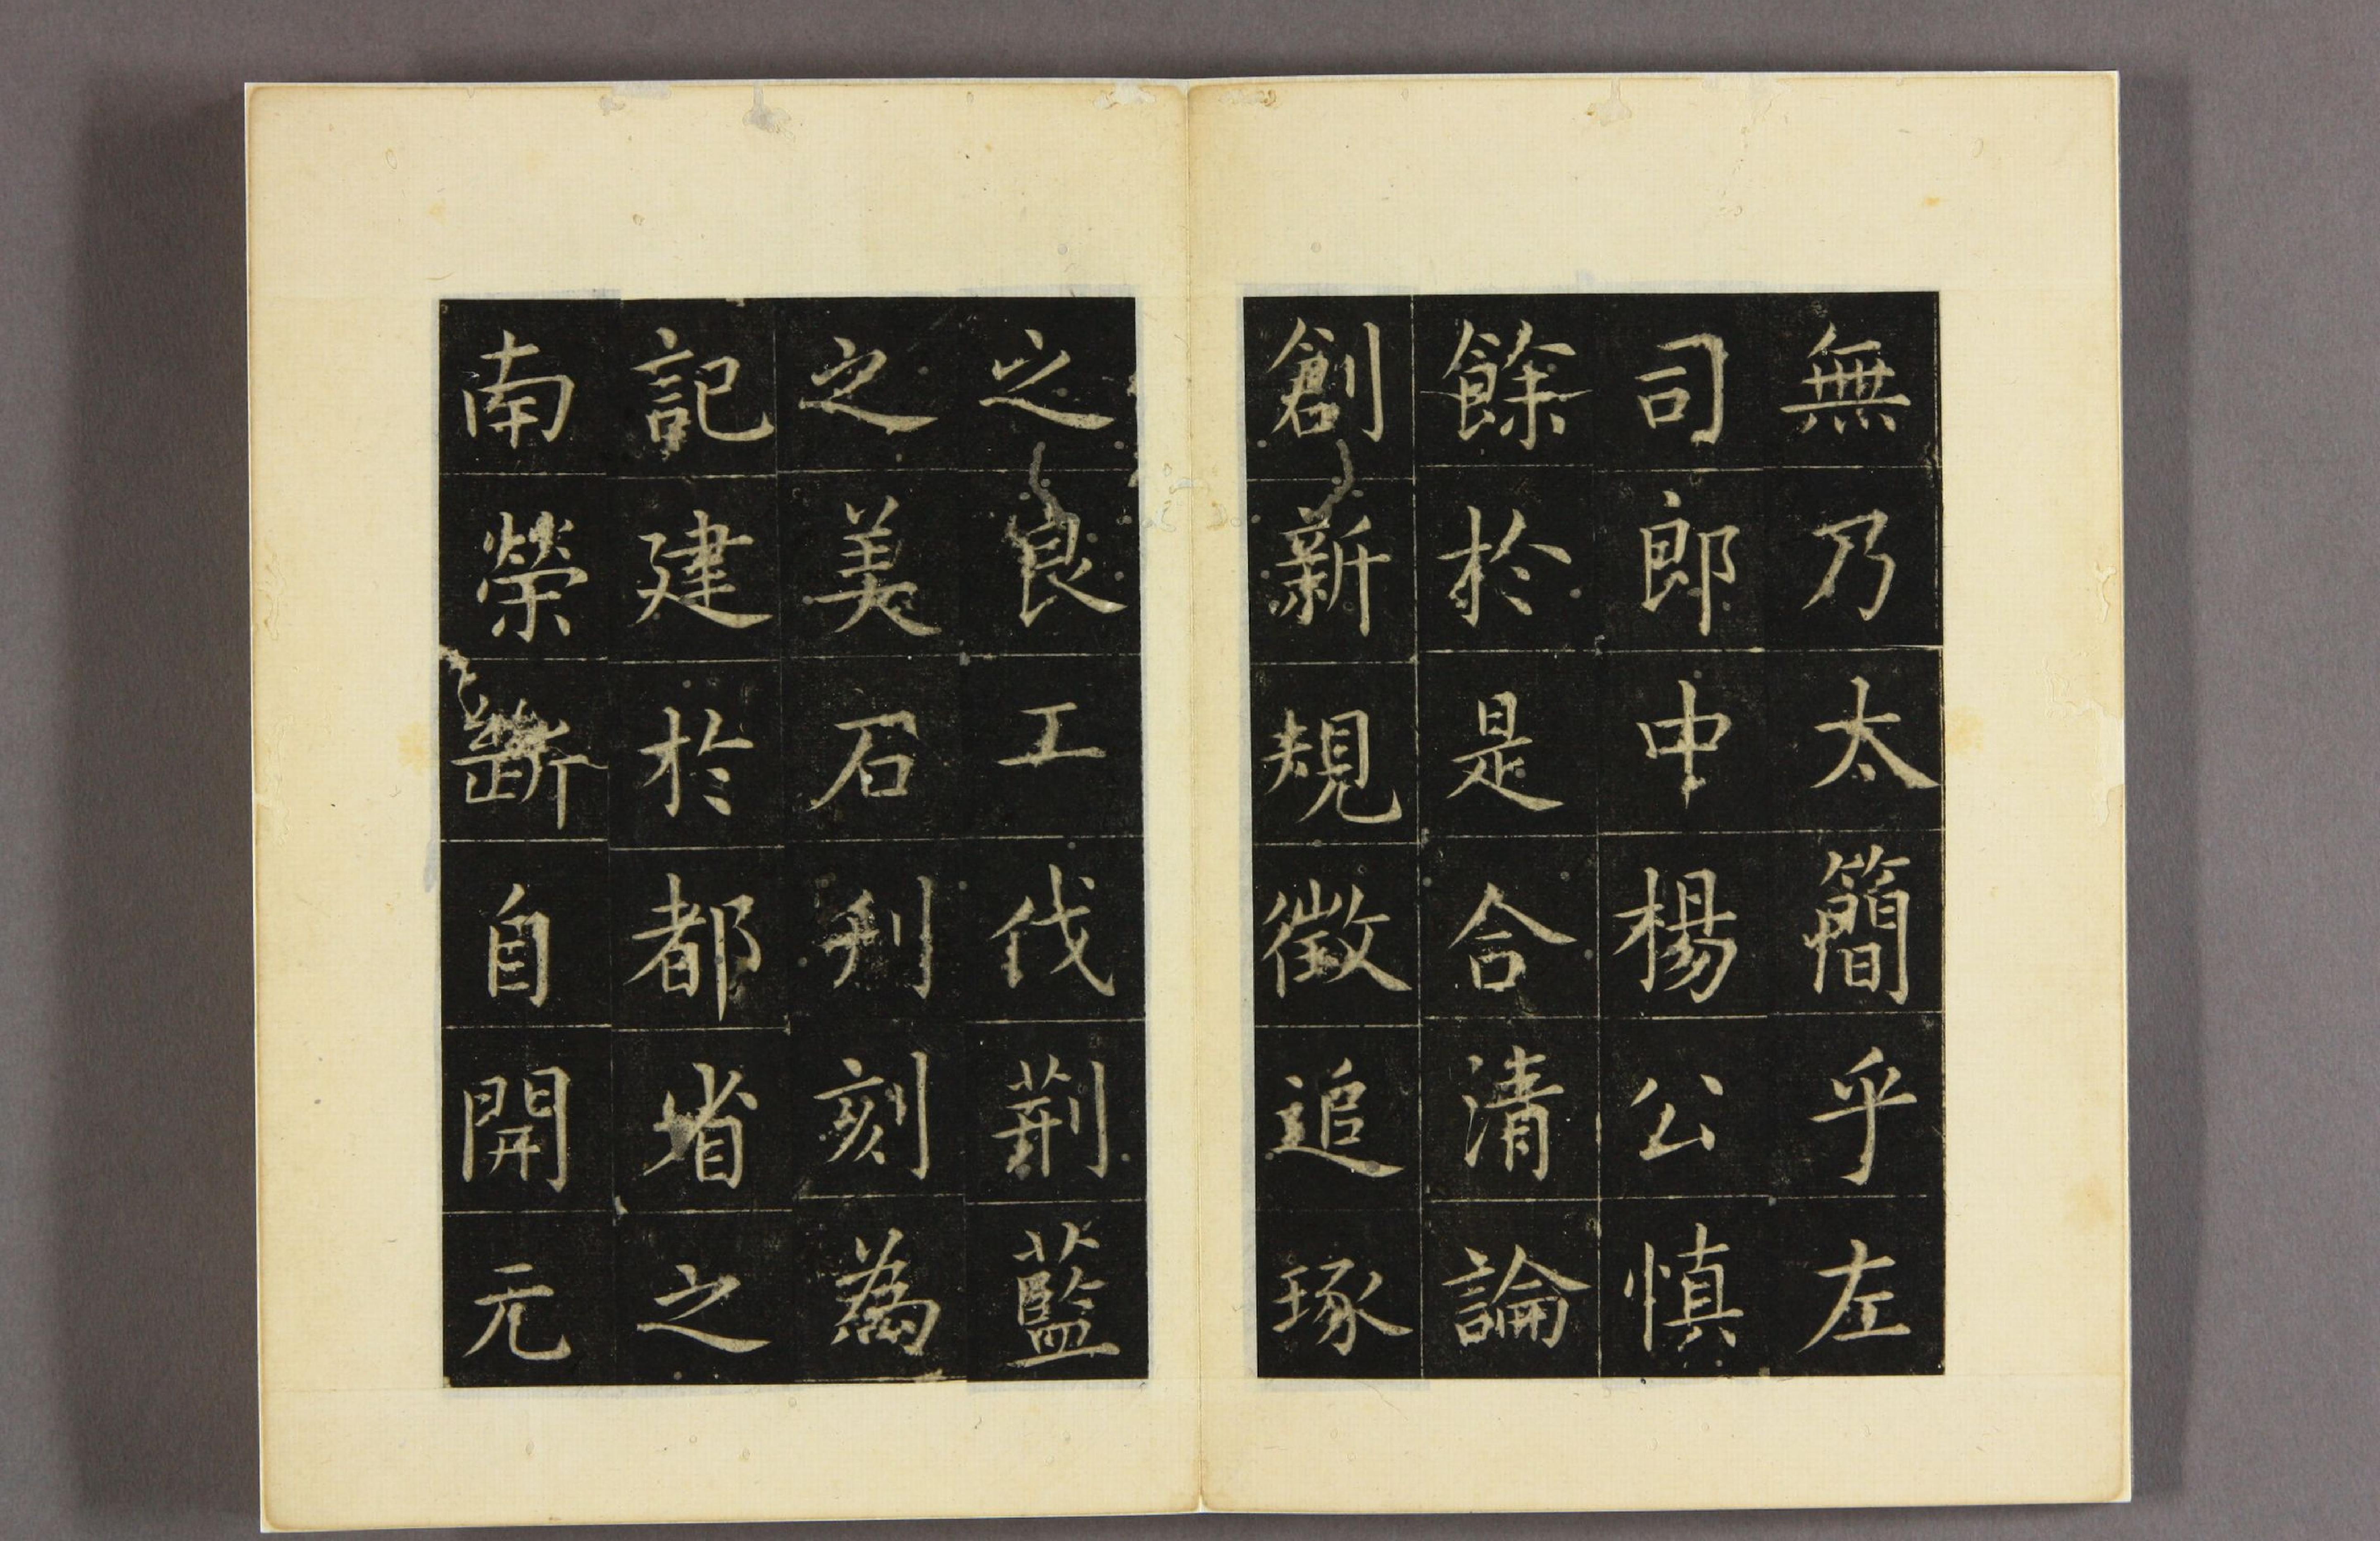 無乃太簡乎左
司郎中楊公慎
餘於是合清論
創新規徵追琢
之良工伐荊藍
之美石刊刻為
記建於都省之
南榮斷自開元